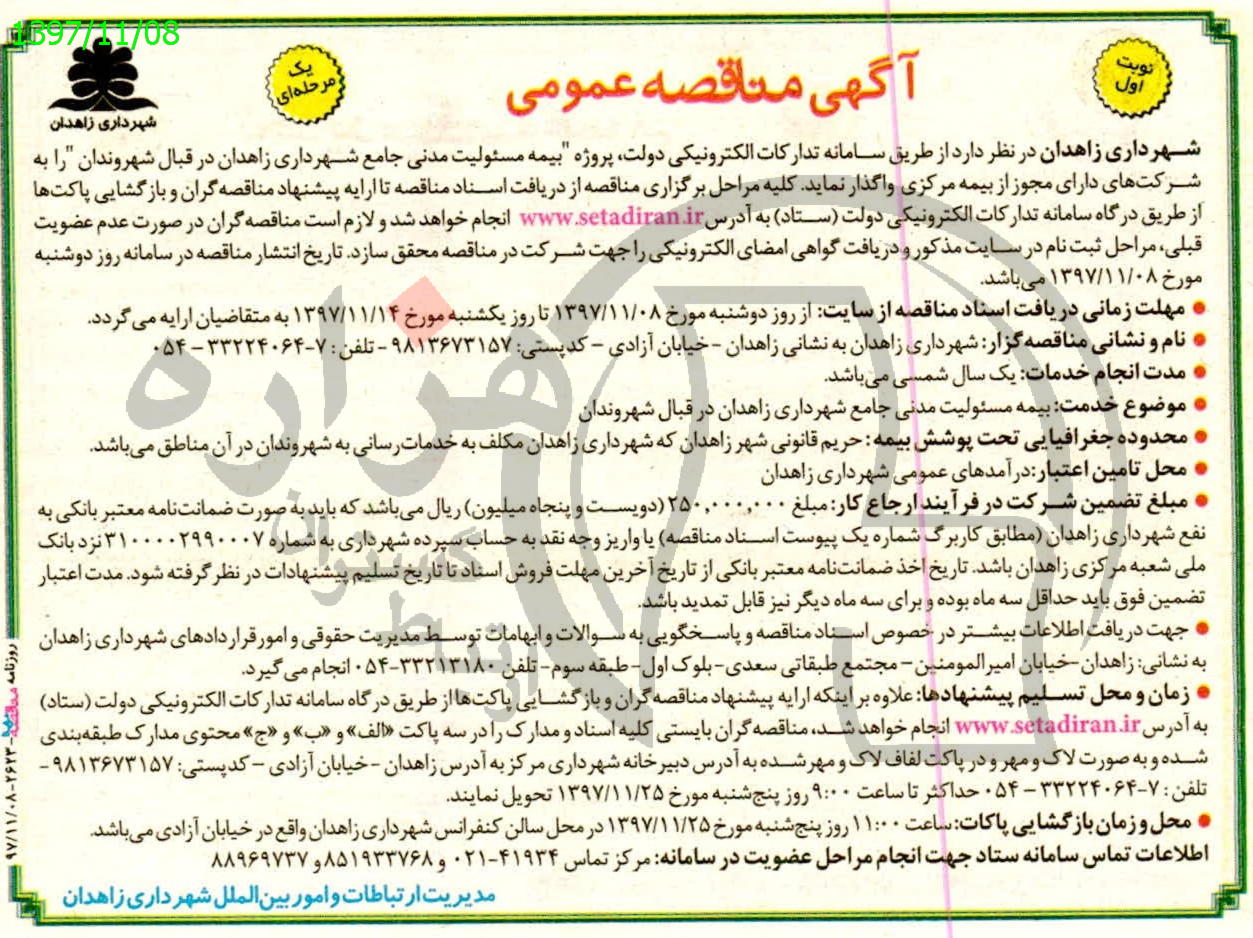 1397/11/08
شهرداری زاهدان
یک
مرحله‌ای
آگهی مناقصه عمومی
نوبت
اول
شهرداری زاهدان در نظر دارد از طریق سامانه تدارکات الکترونیکی دولت، پروژه "بیمه مسئولیت مدنی جامع شهرداری زاهدان در قبال شهروندان "را به
شرکت‌های دارای مجوز از بیمه مرکزی واگذار نماید. کلیه مراحل برگزاری مناقصه از دریافت اسناد مناقصه تا ارایه پیشنهاد مناقصه‌گران و بازگشایی پاکت‌ها
از طریق درگاه سامانه تدارکات الکترونیکی دولت (ستاد) به آدرس www.setadiran.ir انجام خواهد شد و لازم است مناقصه‌گران در صورت عدم عضویت
قبلی، مراحل ثبت نام در سایت مذکور و دریافت گواهی امضای الکترونیکی را جهت شرکت در مناقصه محقق سازد. تاریخ انتشار مناقصه در سامانه روز دوشنبه
مورخ ۱۳۹۷/۱۱/۰۸ می‌باشد.
● مهلت زمانی دریافت اسناد مناقصه از سایت: از روز دوشنبه مورخ ۱۳۹۷/۱۱/۰۸ تا روز یکشنبه مورخ ۱۳۹۷/۱۱/۱۴ به متقاضیان ارایه می‌گردد.
● نام و نشانی مناقصه‌گزار: شهرداری زاهدان به نشانی زاهدان -خیابان آزادی – کدپستی: ۹۸۱۳۶۷۳۱۵۷ - تلفن : ۷-۳۳۲۲۴۰۶۴ – ۰۵۴
● مدت انجام خدمات: یک سال شمسی می‌باشد.
● موضوع خدمت: بیمه مسئولیت مدنی جامع شهرداری زاهدان در قبال شهروندان
● محدوده جغرافیایی تحت پوشش بیمه : حریم قانونی شهر زاهدان که شهرداری زاهدان مکلف به خدمات‌رسانی به شهروندان در آن مناطق می‌باشد.
● محل تامین اعتبار:درآمدهای عمومی شهرداری زاهدان
● مبلغ تضمین شرکت در فرآیند ارجاع کار: مبلغ ۲۵۰,۰۰۰,۰۰۰ (دویست و پنجاه میلیون) ریال می‌باشد که باید به صورت ضمانت‌نامه معتبر بانکی به
نفع شهرداری زاهدان (مطابق کاربرگ شماره یک پیوست اسناد مناقصه) یا واریز وجه نقد به حساب سپرده شهرداری به شماره ۳۱۰۰۰۰۲۹۹۰۰۰۷ نزد بانک
ملی شعبه مرکزی زاهدان باشد. تاریخ اخذ ضمانت‌نامه معتبر بانکی از تاریخ آخرین مهلت فروش اسناد تا تاریخ تسلیم پیشنهادات در نظر گرفته شود. مدت اعتبار
تضمین فوق باید حداقل سه ماه بوده و برای سه ماه دیگر نیز قابل تمدید باشد.
● جهت دریافت اطلاعات بیشتر در خصوص اسناد مناقصه و پاسخگویی به سوالات و ابهامات توسط مدیریت حقوقی و امور قراردادهای شهرداری زاهدان
به نشانی: زاهدان-خیابان امیرالمومنین- مجتمع طبقاتی سعدی-بلوک اول- طبقه سوم- تلفن ۳۳۲۱۳۱۸۰-۰۵۴ انجام می‌گیرد.
● زمان و محل تسلیم پیشنهادها: علاوه بر اینکه ارایه پیشنهاد مناقصه‌گران و بازگشایی پاکت‌ها از طریق درگاه سامانه تدارکات الکترونیکی دولت (ستاد)
به آدرس www.setadiran.ir انجام خواهد شد، مناقصه‌گران بایستی کلیه اسناد و مدارک را در سه پاکت «الف» و «ب» و «ج» محتوی مدارک طبقه‌بندی
شده و به صورت لاک و مهر و در پاکت لفاف لاک و مهر شده به آدرس دبیرخانه شهرداری مرکز به آدرس زاهدان -خیابان آزادی – کدپستی: ۹۸۱۳۶۷۳۱۵۷ -
تلفن : ۷-۳۳۲۲۴۰۶۴ – ۰۵۴ حداکثر تا ساعت ۹:۰۰ روز پنج‌شنبه مورخ ۱۳۹۷/۱۱/۲۵ تحویل نمایند.
● محل و زمان بازگشایی پاکات: ساعت ۱۱:۰۰ روز پنج‌شنبه مورخ ۱۳۹۷/۱۱/۲۵ در محل سالن کنفرانس شهرداری زاهدان واقع در خیابان آزادی می‌باشد.
اطلاعات تماس سامانه ستاد جهت انجام مراحل عضویت در سامانه: مرکز تماس ۴۱۹۳۴-۰۲۱ و ۸۵۱۹۳۳۷۶۸و ۸۸۹۶۹۷۳۷
مدیریت ارتباطات و امور بین‌الملل شهرداری زاهدان
روزنامه مناقصه-۲۶۲۳-۹۷/۱۱/۰۸
هزاره